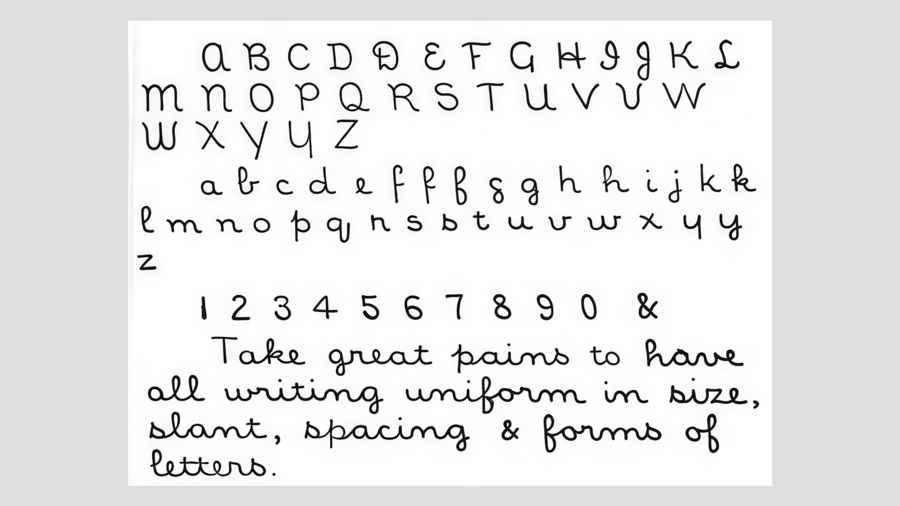 A B C D D E F G H I J K L
M N O P Q R S T U V V W
W X Y Y Z
a b c d e f f f g g h h i j k k
l m n o p q r s s t u v w x y y
z
1 2 3 4 5 6 7 8 9 0 &
Take great pains to have
all writing uniform in size,
slant, spacing & forms of
letters.